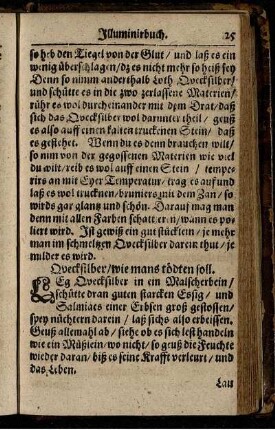 Illuminirbuch. 25
so heb den Tiegel von der Glut / und laß es ein
wenig überschlagen / dz es nicht mehr so heiß sey
Denn so nimm anderthalb Loth Qvecksilber /
und schütte es in die zwo zerlassene Materien /
rühr es wol durcheinander mit dem Drat / daß
sich das Qvecksilber wol darunter theil / geuß
es also auff einen kalten truckenen Stein / daß
es gestehet. Wenn du es denn brauchen wilt /
so nim von der gegossenen Materien wie viel
du wilt / reib es wol auff einen Stein / tempe-
rirs an mit Eyer Temperatur / trag es auf und
laß es wol trucknen / bruniers mit dem Zan / so
wirds gar glantz und schön. Darauf mag man
denn mit allen Farben schattiren / wann es po-
liert wird. Ist gewiß ein gut stücklein / je mehr
man im schmeltzen Qvecksilber darein thut / je
milder es wird.
Qvecksilber / wie mans tödten soll.
LEg Qvecksilber in ein Malscherbein /
schütte dran guten starcken Essig / und
Salmiacs einer Erbsen groß gestossen /
spey nüchtern darein / laß sichs also erbeissen.
Geuß allemahl ab / siehe ob es sich lest handeln
wie ein Müßlein / wo nicht / so geuß die Feuchte
wieder daran / biß es seine Krafft verleurt / und
das Leben.
Lau